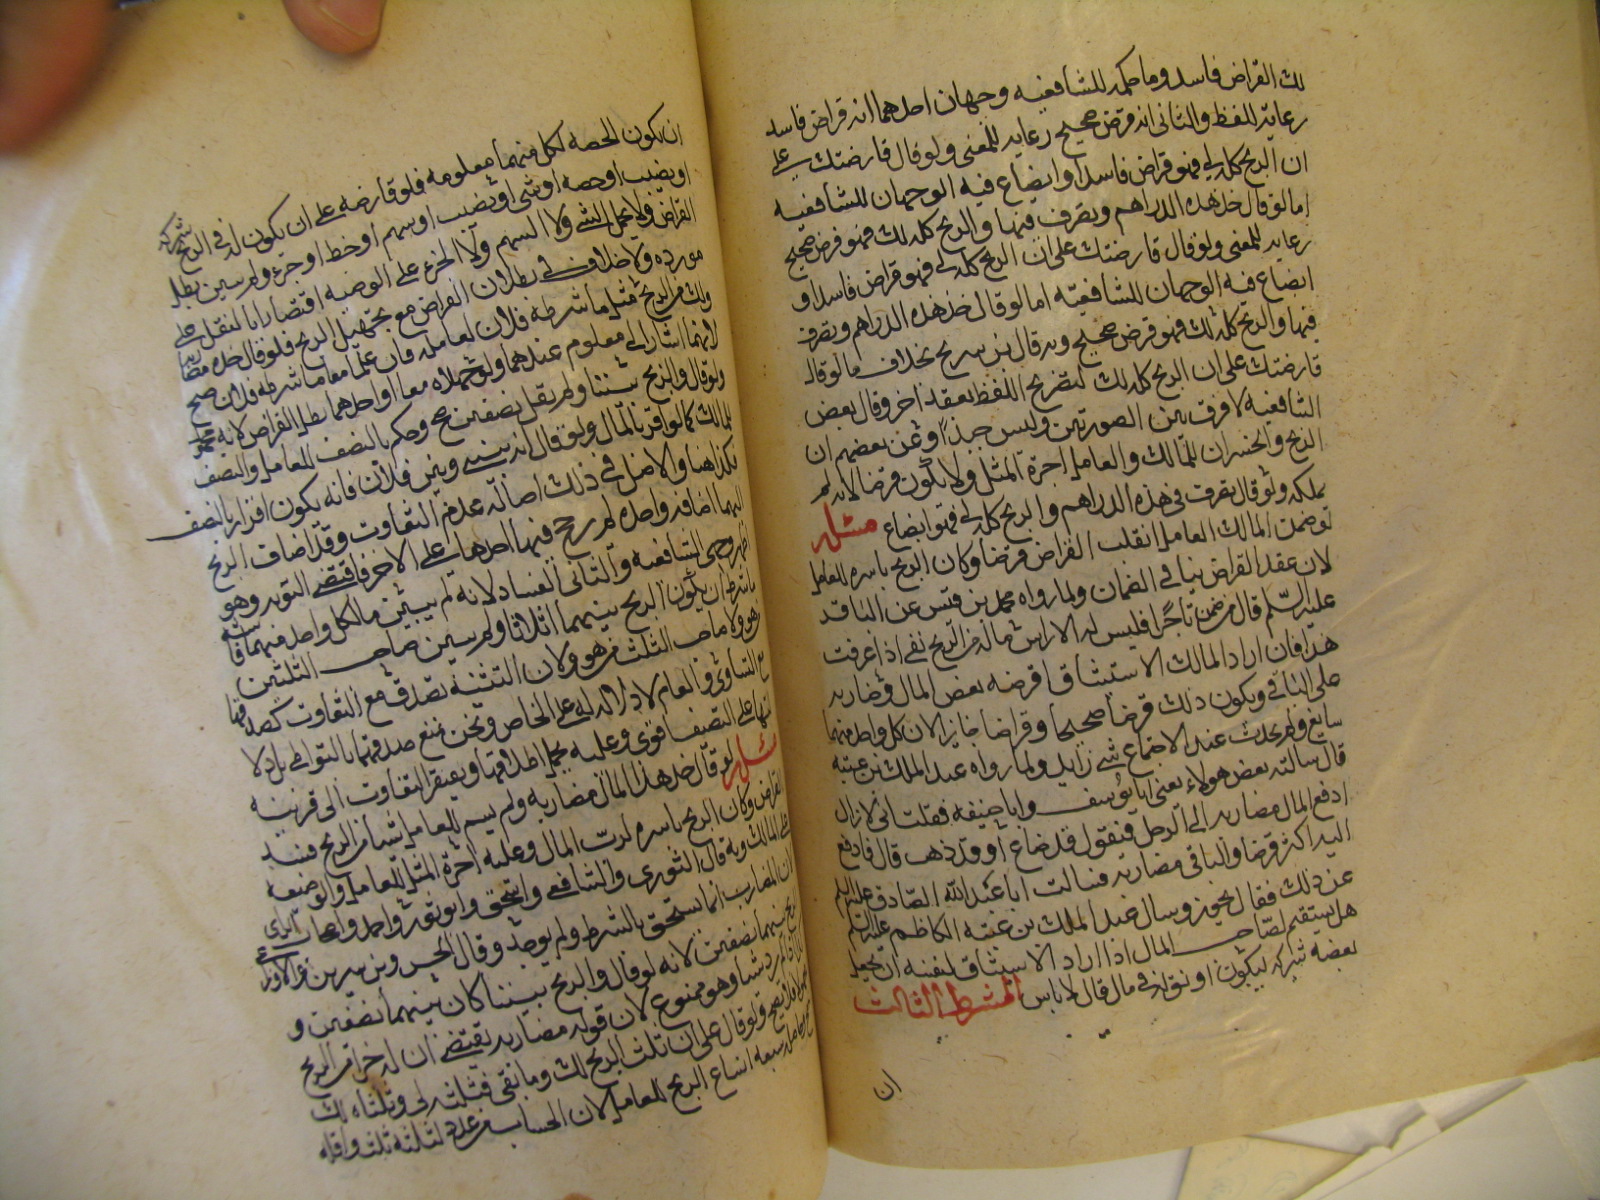 لك القراض فاسد وما حكمه للشافعيه وجهان احدهما انه قراض فاسد
رعاية للفظ والثاني انه قرض صحيح رعايه للمعنى ولو قال قارضتك على
ان الربح كله لي فهو قراض فاسد او ابضاع فيه الوجهان للشافعيه
اما لو قال خذ هذه الدراهم وتصرف فيها والربح كله لك فهو قرض صحيح
رعايه للمعنى ولو قال قارضتك على ان الربح كله لي فهو قراض فاسد او
ابضاع فيه الوجهان للشافعيه اما لو قال خذ هذه الدراهم وتصرف
فيها والربح كله لك فهو قرض صحيح وبه قال بن سريج بخلاف ما لو قال
قارضتك على ان الربح كله لك لتصريح اللفظ بعقد اخر وقال بعض
الشافعيه لا فرق بين الصورتين وليس جيدا وعن بعضهم ان
الربح والخسران للمالك والعامل اجرة المثل ولا يكون قرضا لانه لم
يملكه ولو قال تصرف في هذه الدراهم والربح كله لي فهو ابضاع مسئله
لو ضمن المالك العامل انقلب القراض قرضا وكان الربح باسره للعامل
لان عقد القراض ينافي الضمان ولما رواه محمد بن قيس عن الباقر
عليه السلم قال من ضمن تاجرا فليس له الا راس ماله من الربح شي اذا عرفت
هذا فان اراد المالك الاستيثاق اقرضه بعض المال وضاربه
على الباقي ويكون ذلك قرضا صحيحا وقراضا جايزا لان كل واحد منهما
سايغ ولم يحدث عند الاجتماع شي زايد ولما رواه عبد الملك بن عتبه
قال سالته بعض هولاء يعني ابا يوسف وابا حنيفه فقلت اني لا ازال
ادفع المال مضاربه الى الرجل فيقول قد ضاع او قد ذهب قال فادفع
اليه اكثره قرضا والباقي مضاربه فسالت ابا عبد الله الصادق عليه السلم
عن ذلك فقال يجوز وسال عبد الملك بن عتبه الكاظم عليه السلم
هل يستقيم لصاحب المال اذا اراد الاستيثاق لنفسه ان يجعل
بعضه شركه ليكون اوثق له في ماله قال لا باس الشرط الثالث
ان
ان يكون الحصه لكل منهما معلومه فلو قارضه على ان يكون له في الربح شركه
او نصيب او حصه او شي او نصيب او سهم او حظ او جزء ولم يبين بطل
القراض ولا يحمل الشي ولا السهم ولا الجزء على الوصيه اقتصارا بالنقل على
مورده ولا خلاف في بطلان القراض مع تجهيل الربح فلو قال خذه مضاربه
ولك من الربح مثل ما شرطه فلان لعامله فان علما معا ما شرطه فلان صح
لانهما اشارا الى معلوم عندهما ولو جهلاه معا او احدهما بطل القراض لانه مجهول
ولو قال والربح بيننا ولم يقل نصفين صح وحكم بالنصف للعامل والنصف
للمالك كما لو اقر بالمال ولو قال انه بيني وبين فلان فانه يكون اقرارا بالنصف
فكذا هنا والاصل في ذلك اصالة عدم التفاوت وقد اضاف الربح
اليهما اضافه واحده لم يرجح فيها احدهما على الاخر فاقتضى التسويه وهو
اظهر وجهي الشافعيه والثاني الفساد لانه لم يبين ما لكل واحد منهما فاشبه
ما شرط ان يكون الربح بينهما اثلاثا ولم يبين صاحب الثلثين
من هو ولا صاحب الثلث من هو ولان التثنيه تصدق مع التفاوت كصدقها
مع التساوي والعام لا دلاله له على الخاص ونحن نمنع صدقها بالتواطي بل دلا
لتها على التنصيف اقوى وعليه يحمل اطلاقها ويفتقر التفاوت الى قرينه
مسئله لو قال خذ هذا المال مضاربه ولم يسم للعامل شيا من الربح فسد
القراض وكان الربح باسره لرب المال وعليه اجرة المثل للعامل والوضيعه
على المالك وبه قال الثوري والشافعي واسحق وابو ثور واحمد واصحاب الراي
لان المضارب انما يستحق بالشرط ولم يوجد وقال الحسن وبن سيرين والاوزاعي
الربح بينهما نصفين لانه لو قال والربح بيننا كان بينهما نصفين و
شيا وهو ممنوع لان قوله مضاربه يقتضي ان له جزا من الربح
فلا تصح ولو قال على ان ثلث الربح لك وما بقي فثلثه لي وثلثاه لك
صح وحاصله سبعه اتساع الربح للعامل لان الحساب من عدد لثلثه ثلث واقله